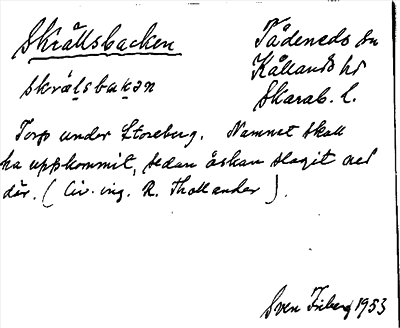 Skrållsbacken
Tådeneds sn
Kållands hd
skrålsbakən
Skarab. l.
Torp under Storeberg. Namnet skall
ha uppkommit, sedan åskan slagit ned
där. (Civ. ing. R. Thollander).
Sven Friberg 1953